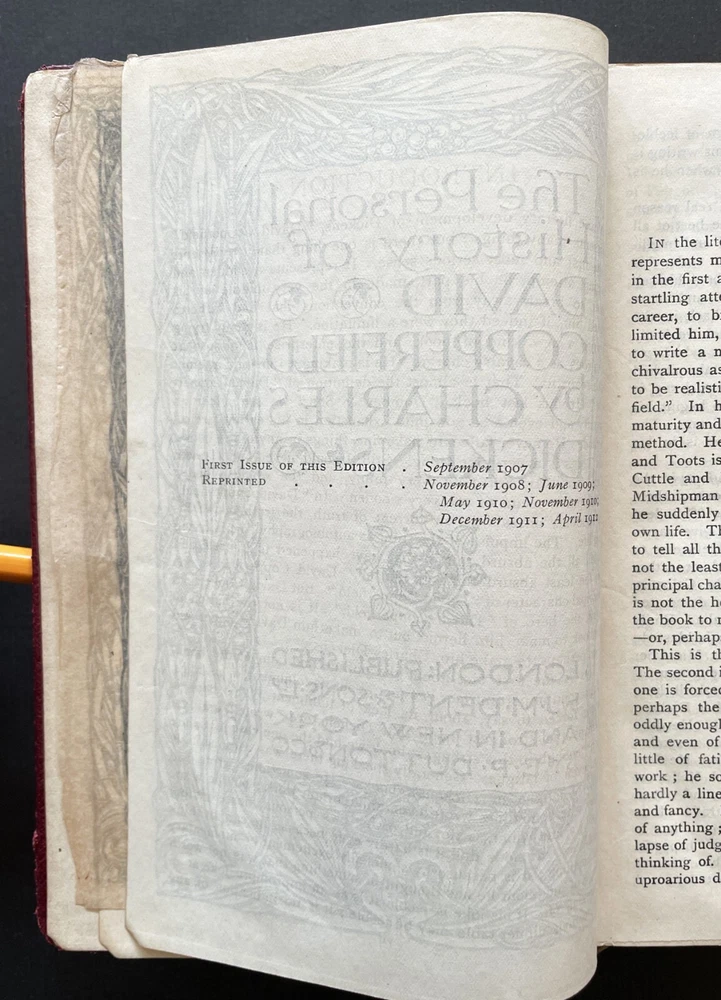 FIRST ISSUE OF THIS EDITION . September 1907
REPRINTED . . . . November 1908; June 1909;
May 1910; November 1910;
December 1911; April 1912
The Personal
History of
DAVID
COPPERFIELD
by CHARLES
DICKENS
LONDON: PUBLISHED
by J·M·DENT & SONS·LTD
AND IN NEW YORK
BY E·P·DUTTON & CO
IN the lite
represents m
in the first a
startling atte
career, to b
limited him,
to write a n
chivalrous as
to be realisti
field." In h
maturity and
method. He
and Toots is
Cuttle and
Midshipman
he suddenly
own life. Th
to tell all th
not the least
principal cha
is not the he
the book to r
—or, perhap
This is th
The second i
one is forced
perhaps the
oddly enough
and even of
little of fati
work; he sc
hardly a line
and fancy.
of anything;
lapse of judg
thinking of.
uproarious d